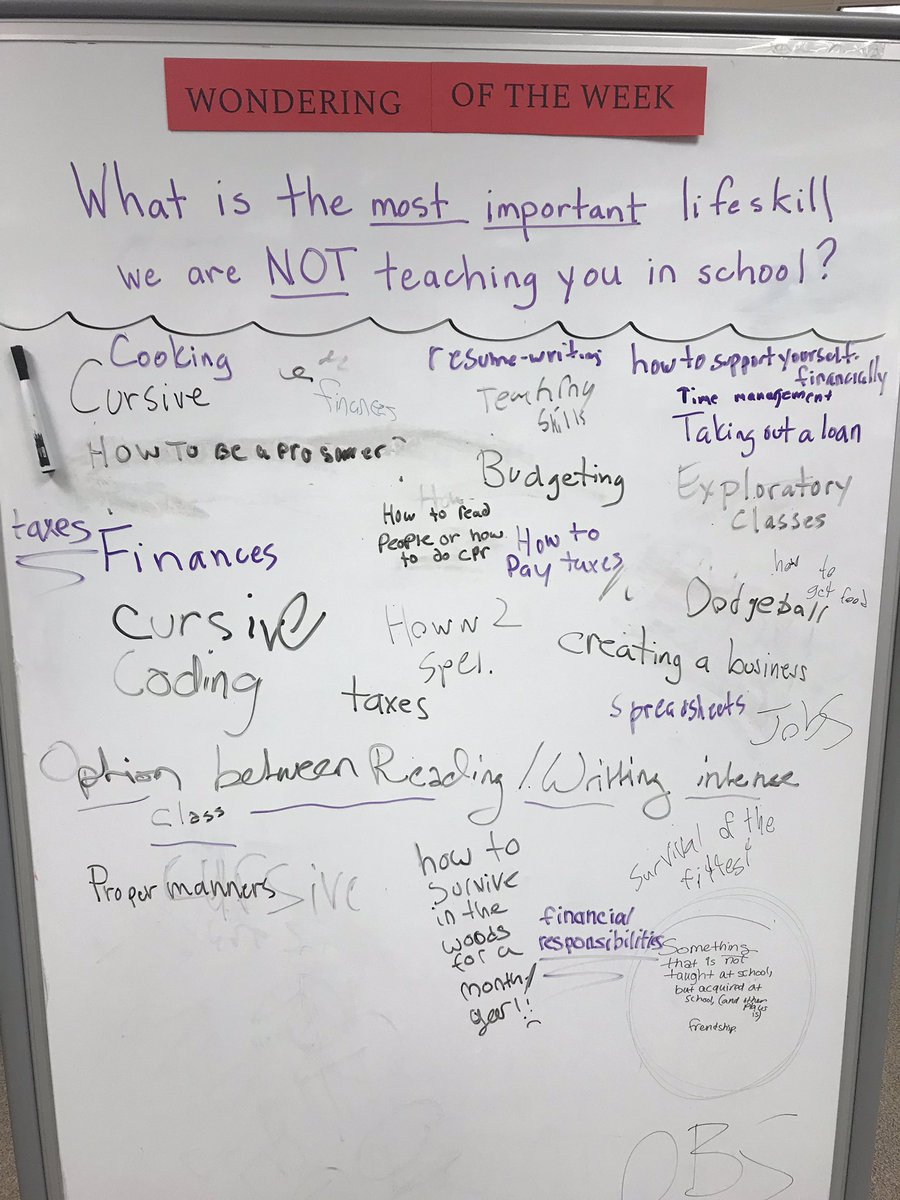 WONDERING OF THE WEEK
What is the most important lifeskill
we are NOT teaching you in school?
Cooking
Cursive
finances
resume-writing
Teaching
Skills
how to support yourself
financially
Time management
Taking out a loan
How To Be a pro
Budgeting
Exploratory
Classes
taxes
Finances
How
How to read
People or how
to do cpr
How to
Pay taxes
how to
get food
Dodgeball
Cursive
Coding
Hown 2
Spel.
taxes
creating a business
spreadsheets
JOBS
Option between Reading / Writting intense
class
Proper manners
Cursive
how to
survive
in the
woods
for a
month/
year!
Survival of the
fittest
financial
responsibilities
Something
that is not
taught at school,
but acquired at
school, (and other
places
is)
frendship
OBS